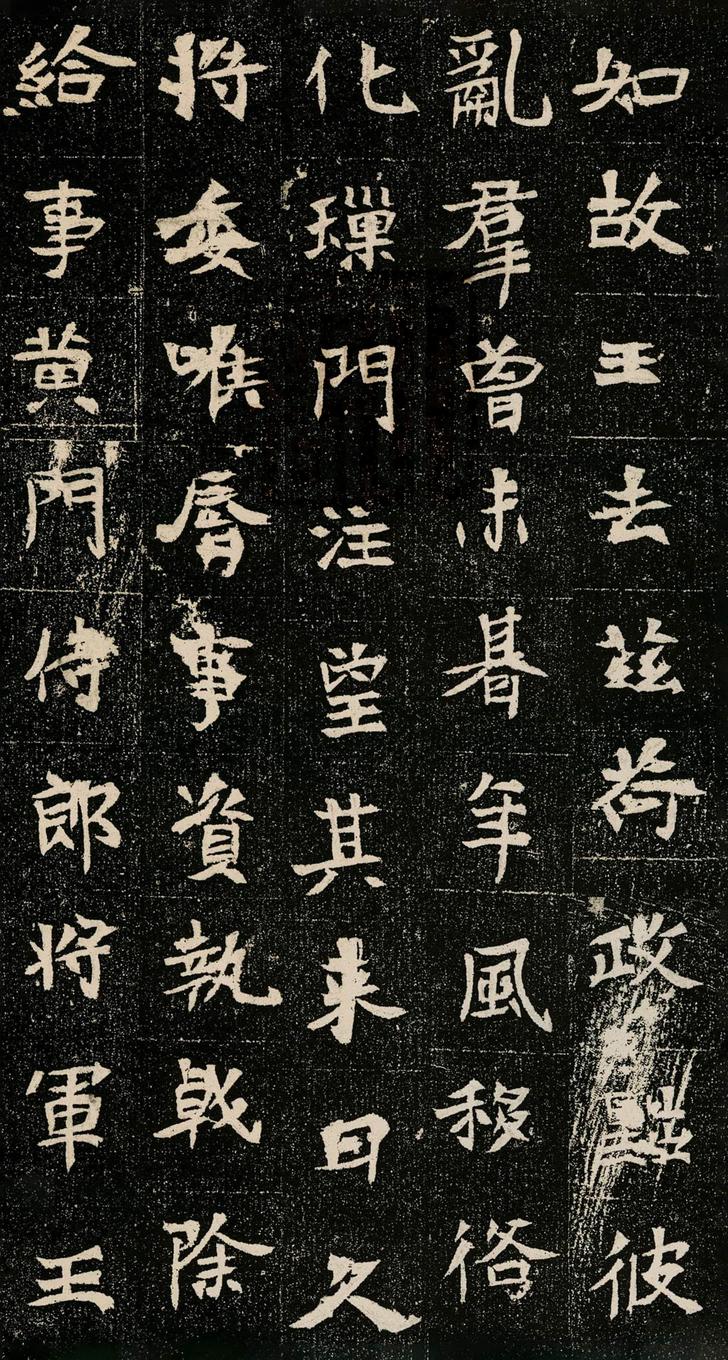 知故王去兹苛政黜彼
亂羣曾未朞年風移俗
化璅門注望其来日久
将委喉脣事資執戟除
給事黄門侍郎将軍王